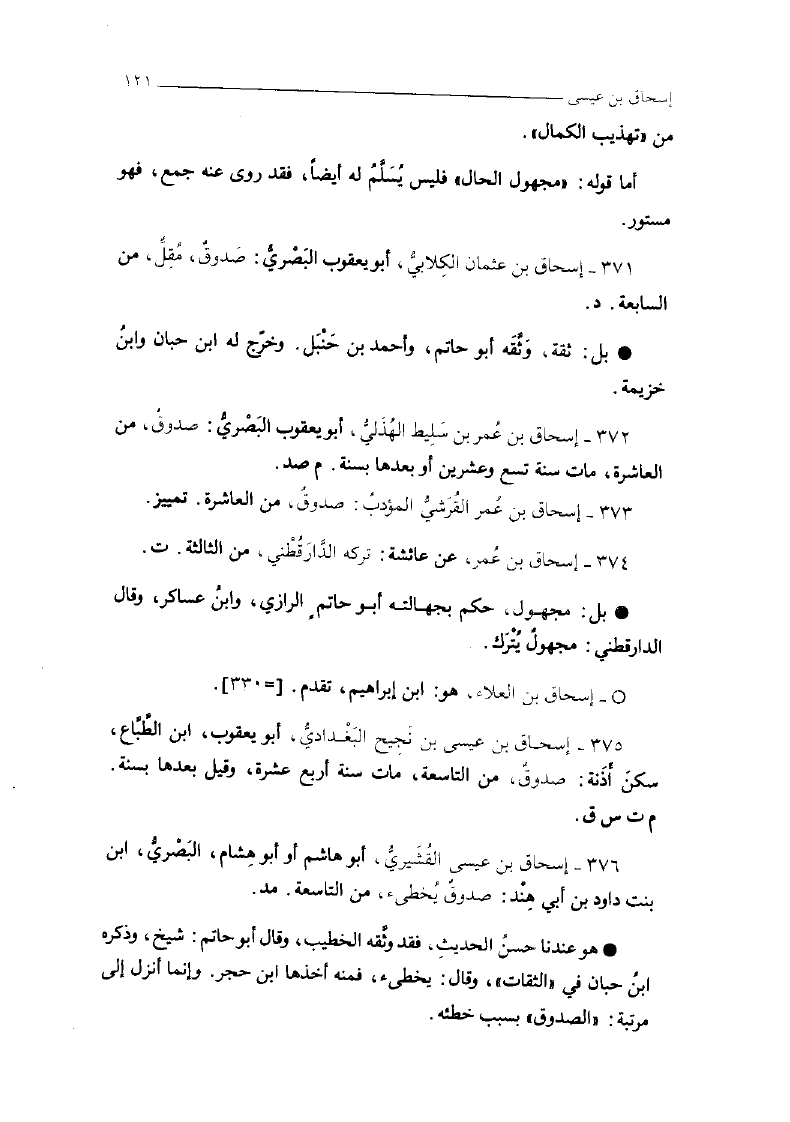 إسحاق بن عيسى ١٢١
من «تهذيب الكمال».
أما قوله: «مجهول الحال» فليس يُسَلَّمُ له أيضاً، فقد روى عنه جمع، فهو
مستور.
٣٧١ ـ إسحاق بن عثمان الكِلابيُّ، أبو يعقوب البَصْريُّ: صَدوقٌ، مُقِلٌّ، من
السابعة. د.
● بل: ثقة، وَثَّقَه أبو حاتم، وأحمد بن حَنْبَل. وخرّج له ابن حبان وابنُ
خزيمة.
٣٧٢ ـ إسحاق بن عُمر بن سَلِيط الهُذَليُّ، أبو يعقوب البَصْريُّ: صدوقٌ، من
العاشرة، مات سنة تسع وعشرين أو بعدها بسنة. م صد.
٣٧٣ ـ إسحاق بن عُمر القُرَشيُّ المؤدبُ: صدوقٌ، من العاشرة. تمييز.
٣٧٤ ـ إسحاق بن عُمر، عن عائشة: تركه الدَّارَقُطْني، من الثالثة. ت.
● بل: مجهول، حكم بجهالته أبو حاتم الرازي، وابنُ عساكر، وقال
الدارقطني: مجهولٌ يُتْرَك.
○ ـ إسحاق بن العلاء، هو: ابن إبراهيم، تقدم. [=٣٣٠].
٣٧٥ ـ إسحاق بن عيسى بن نَجِيح البَغْداديُّ، أبو يعقوب، ابن الطَّبَّاع،
سكنَ أَذَنة: صدوقٌ، من التاسعة، مات سنة أربع عشرة، وقيل بعدها بسنة.
م ت س ق.
٣٧٦ ـ إسحاق بن عيسى القُشَيريُّ، أبو هاشم أو أبو هِشام، البَصْريُّ، ابن
بنت داود بن أبي هِنْد: صدوقٌ يُخطىء، من التاسعة. مد.
● هو عندنا حسنُ الحديثِ، فقد وثَّقه الخطيب، وقال أبو حاتم: شيخ، وذكره
ابنُ حبان في «الثقات»، وقال: يخطىء، فمنه أخذها ابن حجر. وإنما أنزل إلى
مرتبة: «الصدوق» بسبب خطئه.